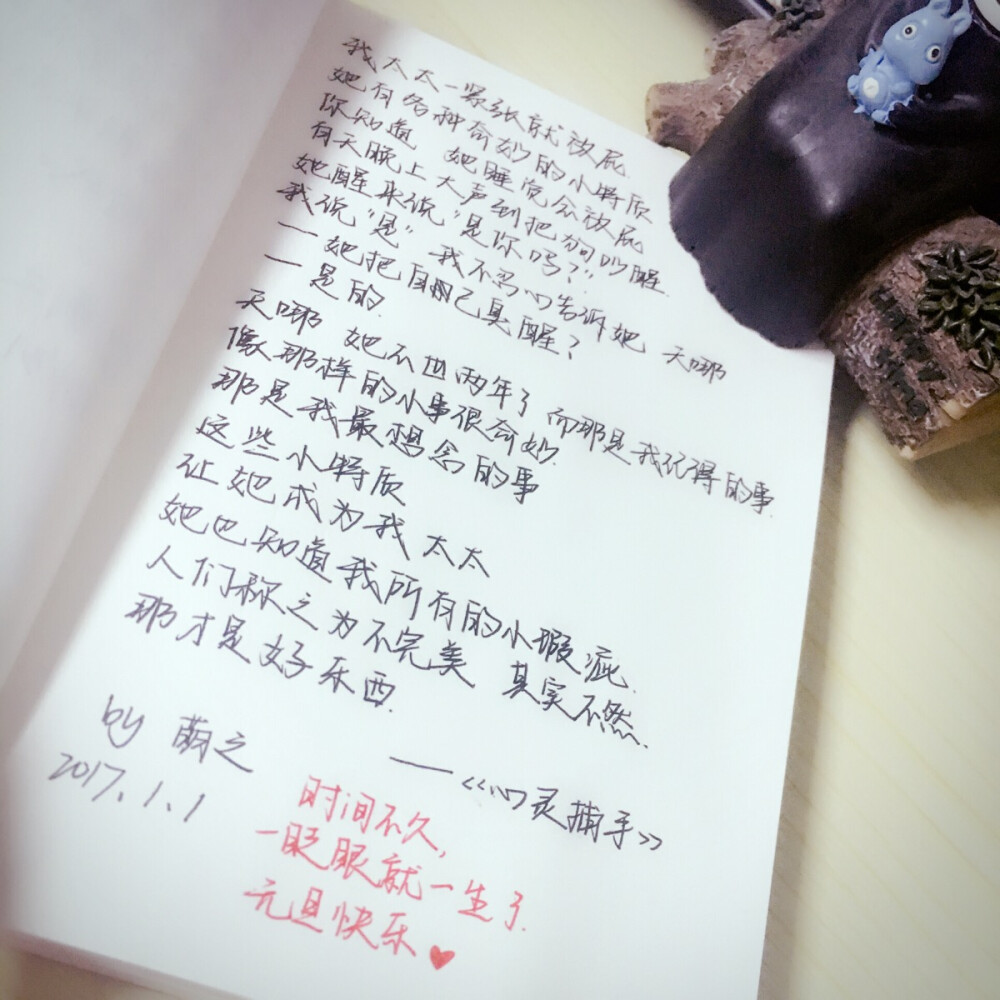 我太太一紧张就放屁.
她有各种奇妙的小特质
你知道 她睡觉会放屁
有天晚上大声到把狗吵醒.
她醒来说"是你吗?"
我说"是" 我不忍心告诉她 天哪
—她把自己臭醒?
—是的.
天哪 她不世两年了 而那是我记得的事.
像那样的小事很奇妙.
那是我最想念的事
这些小特质
让她成为我太太
她也知道我所有的小瑕疵.
人们称之为不完美 其实不然.
那才是好东西.
——《心灵捕手》
by 萌之
2017.1.1
时间不久,
一眨眼就一生了.
元旦快乐♥